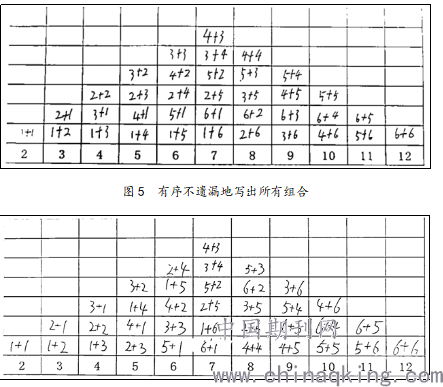 4+3
3+3 3+4 4+4
3+2 4+2 5+2 5+3 5+4
2+2 2+3 2+4 2+5 3+5 4+5 5+5
2+1 3+1 4+1 5+1 6+1 6+2 6+3 6+4 6+5
1+1 1+2 1+3 1+4 1+5 1+6 2+6 3+6 4+6 5+6 6+6
2 3 4 5 6 7 8 9 10 11 12
图 5 有序不遗漏地写出所有组合
4+3
2+4 3+4 5+3
3+2 1+5 5+2 6+2 3+6
3+1 1+4 4+2 2+5 3+5 5+4 4+6
2+1 2+2 4+1 3+3 1+6 6+5
中国期刊网
1+1 1+2 1+3 2+3 5+1 6+1 4+4 4+5 5+5 5+6 6+6
2 3 4 5 6 7 8 9 10 11 12
www.chinaqking.com